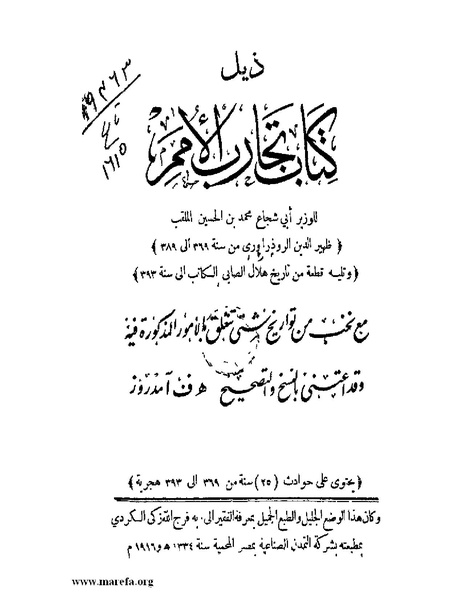 ذيل
كتاب تجارب الأمم
للوزير أبي شجاع محمد بن الحسين الملقب
﴿ ظهير الدين الروذراوري من سنة ٣٦٩ الى ٣٨٩ ﴾
﴿ وتليه قطعة من تاريخ هلال الصابي الكاتب الى سنة ٣٩٣ ﴾
مع نخب من تواريخ شتى تتعلق بالأمور المذكورة فيه
وقد اعتنى بالنسخ والتصحيح ه ف آمدروز
﴿ يحتوى على حوادث (٢٥) سنة من ٣٦٩ الى ٣٩٣ هجرية ﴾
وكان هذا الوضع الجليل والطبع الجميل بمعرفة الفقير اليه به فرج الله زكى الكردي
بمطبعته بشركة التمدن الصناعية بمصر المحمية سنة ١٣٣٤ ه و ١٩١٦ م
www.marefa.org